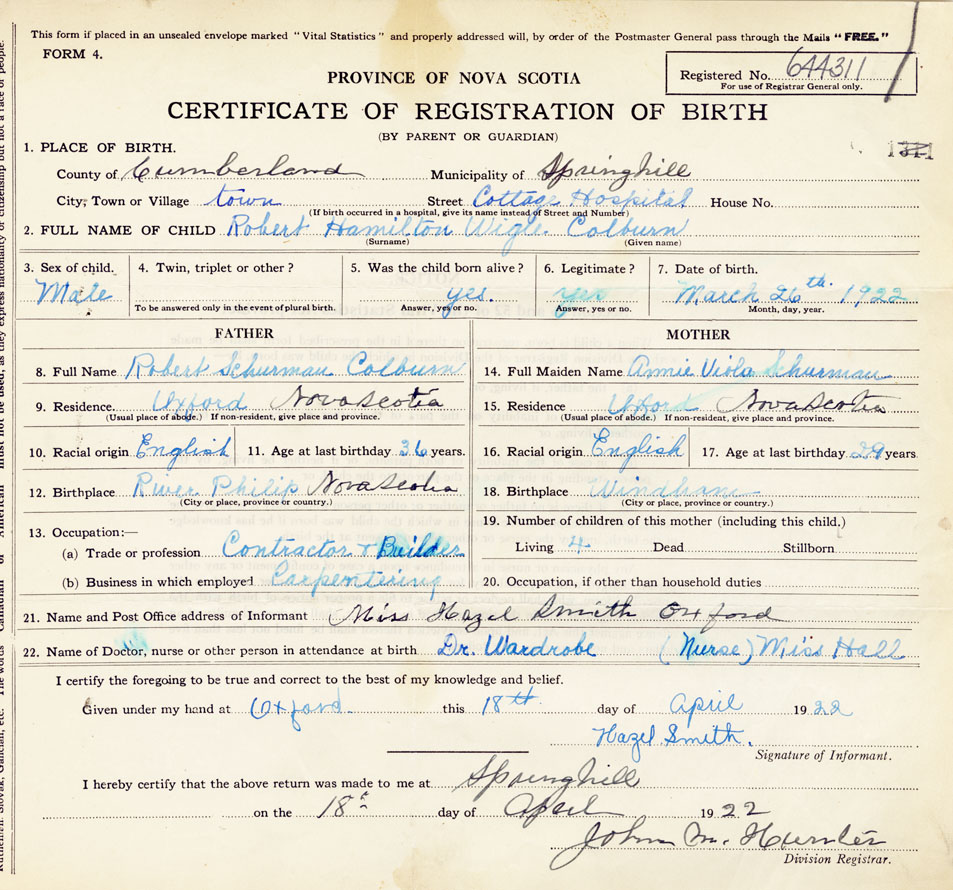 This form if placed in an unsealed envelope marked "Vital Statistics" and properly addressed will, by order of the Postmaster General pass through the Mails "FREE."
FORM 4.
PROVINCE OF NOVA SCOTIA
Registered No. 644311
For use of Registrar General only.
CERTIFICATE OF REGISTRATION OF BIRTH
(BY PARENT OR GUARDIAN)
1. PLACE OF BIRTH.
County of Cumberland Municipality of Springhill
City, Town or Village town Street Cottage Hospital House No.
(If birth occurred in a hospital, give its name instead of Street and Number)
2. FULL NAME OF CHILD Robert Hamilton Wigle Colburn
(Surname) (Given name)
3. Sex of child. 4. Twin, triplet or other? 5. Was the child born alive? 6. Legitimate? 7. Date of birth.
Male yes. yes March 26th. 1922
To be answered only in the event of plural birth. Answer, yes or no. Answer, yes or no. Month, day, year.
FATHER MOTHER
8. Full Name Robert Schurman Colburn 14. Full Maiden Name Annie Viola Schurman
9. Residence. Oxford Nova Scotia 15. Residence Oxford Nova Scotia
(Usual place of abode.) If non-resident, give place and province. (Usual place of abode.) If non-resident, give place and province.
10. Racial origin English 11. Age at last birthday 36 years. 16. Racial origin English 17. Age at last birthday 29 years
12. Birthplace River Philip Nova Scotia 18. Birthplace Windham
(City or place, province or country.) (City or place, province or country.)
13. Occupation:— 19. Number of children of this mother (including this child.)
(a) Trade or profession Contractor + Builder Living 4 Dead Stillborn
(b) Business in which employed Carpentering 20. Occupation, if other than household duties
21. Name and Post Office address of Informant Miss Hazel Smith Oxford
22. Name of Doctor, nurse or other person in attendance at birth Dr. Wardrobe (Nurse) Miss Hall
I certify the foregoing to be true and correct to the best of my knowledge and belief.
Given under my hand at Oxford this 18th day of April 1922
Hazel Smith.
Signature of Informant.
I hereby certify that the above return was made to me at Springhill
on the 18th day of April 1922
John M. Hunter
Division Registrar.